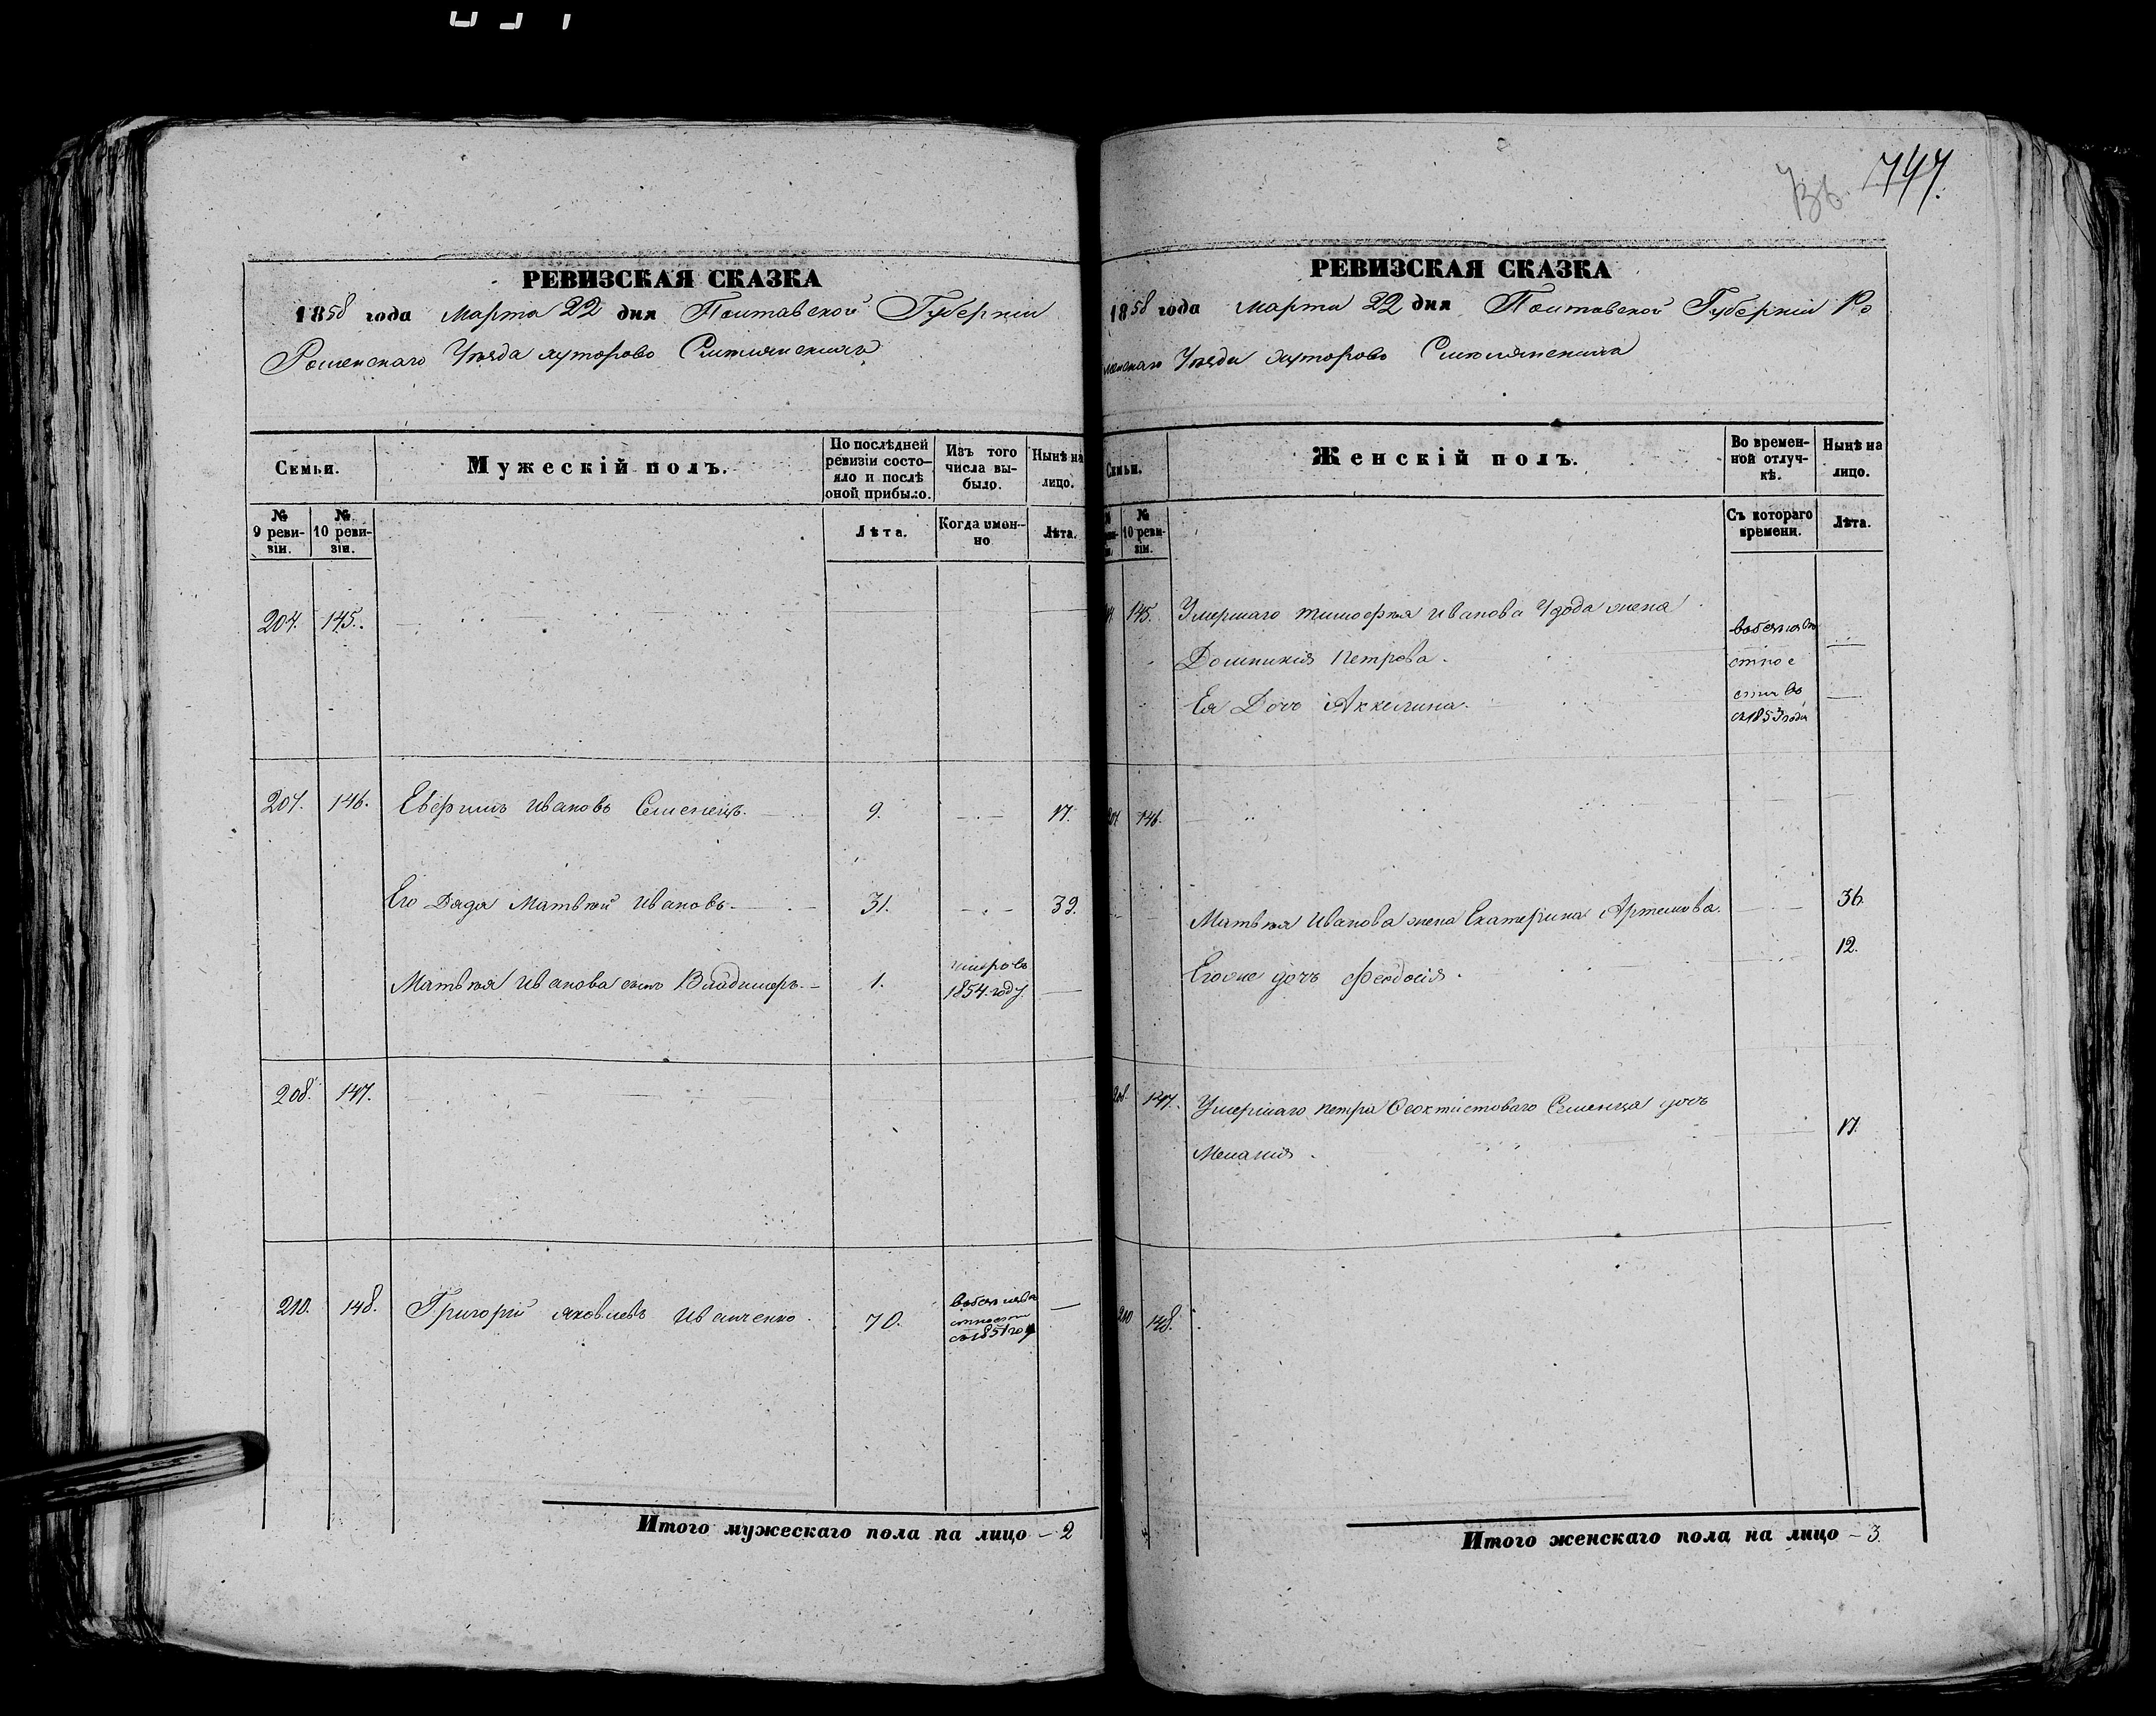 747.
РЕВИЗСКАЯ СКАЗКА
1858 года Марта 22 дня Полтавской Губерніи
Роменскаго Уезда хуторовъ
Семьи.
Мужескій полъ.
По послѣдней ревизіи состояло и послѣ оной прибыло.
Изъ того числа выбыло.
Нынѣ на лицо.
№ 9 ревизіи.
№ 10 ревизіи.
Лѣта.
Когда именно
Лѣта.
204. 145.
207. 146. Ивановъ Семенецъ. 9. 17.
Его Дядя Матвѣй Ивановъ. 31. 39.
Матвѣя Иванова сынъ Владимеръ. 1. умеръ въ 1854. году
208. 147.
210. 148. Григорій Яковлевъ Иванченко. 70. въ безъизвѣстности съ 1851 году
Итого мужескаго пола на лицо – 2
РЕВИЗСКАЯ СКАЗКА
1858 года Марта 22 дня Полтавской Губерніи Ро
менскаго Уезда хуторовъ
Семьи.
Женскій полъ.
Во временной отлучкѣ.
Нынѣ на лицо.
№ 10 ревизіи.
Съ котораго времени.
Лѣта.
145. Умершаго Тимофѣя Иванова Удода жена
Домникія Петрова.
Ея Дочь Аккилина.
въ безъизвѣстности съ 1853 года
146.
Матвѣя Иванова жена Екатерина Артемова. 36.
Егоже дочь Феодосія. 12.
208. 147. Умершаго Петра Феоктистоваго Семенца дочь
Меланія. 17.
210 148.
Итого женскаго пола на лицо – 3.